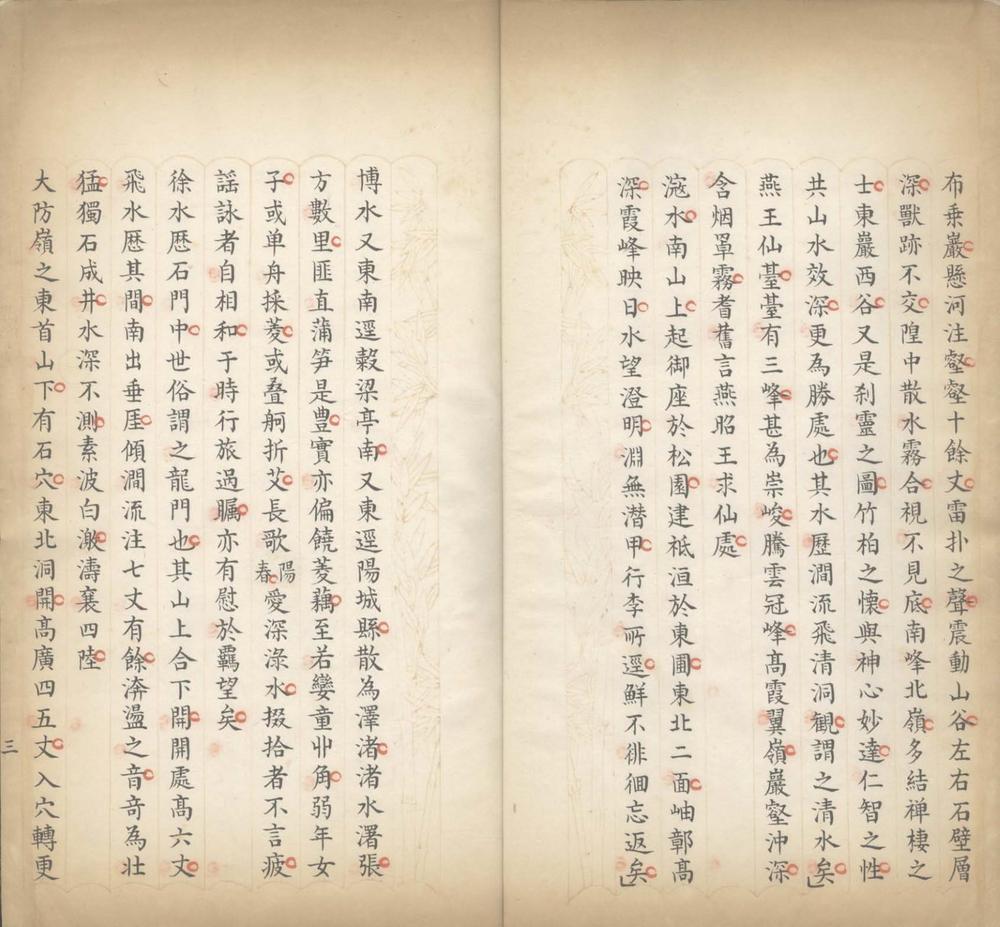 布乗巖懸河注壑壑十餘丈雷扑之聲震動山谷左右石壁層
深獸跡不交隍中散水霧合視不見底南峰北嶺多結禅棲之
士東巖西谷又是刹靈之圖竹柏之懐與神心妙達仁智之性
共山水效深更為勝處也其水歴澗流飛清洞観謂之清水矣
燕王仙䑓䑓有三峰甚為崇峻騰雲冠峰髙霞翼嶺巖壑沖深
含烟罩霧耆舊言燕昭王求仙處
滱水南山上起御座於松園建祗洹於東圃東北二面岫鄣髙
深霞峰映日水望澄明淵無潜甲行李所逕鮮不徘徊忘返矣
博水又東南逕穀梁亭南又東逕陽城縣散為澤渚渚水瀦張
方數里匪直蒲笋是豊實亦偏饒菱藕至若孌童丱角弱年女
子或单舟採菱或叠舸折芰長歌陽春愛深渌水掇拾者不言疲
謡詠者自相和于時行旅過矚亦有慰於羈望矣
徐水歴石門中世俗謂之龍門也其山上合下開開處髙六丈
飛水歴其間南出垂厓傾澗流注七丈有餘渀盪之音竒為壮
猛獨石成井水深不測素波白激濤襄四陸
大防嶺之東首山下有石穴東北洞開髙廣四五丈入穴轉更
三